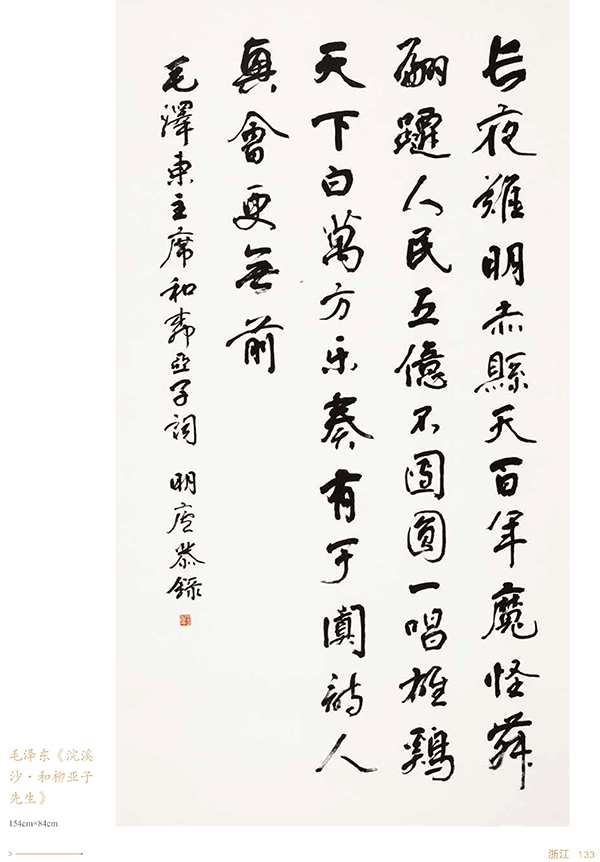 长夜難明赤縣天百年魔怪舞
翩躚人民五億不團圓一唱雄鷄
天下白萬方乐奏有于闐詩人
興會更無前
毛澤東主席和柳亞子詞 明廬恭録
毛泽东《浣溪
沙·和柳亚子
先生》
154cm×84cm
浙江 133